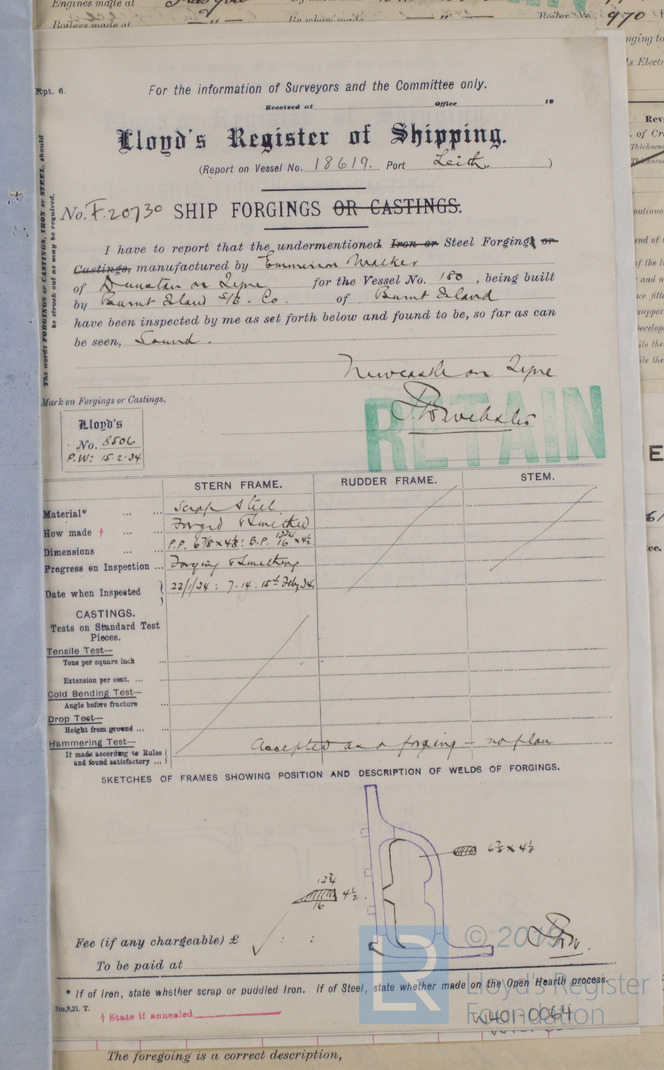 Engines made at
Boilers made at " By whom made " Boiler No. 970
Rpt. 6.
For the information of Surveyors and the Committee only.
Received at Office 19
Lloyd's Register of Shipping.
(Report on Vessel No. 18619. Port Leith )
The words FORGINGS or CASTINGS, IRON or STEEL, should
be struck out as may be required.
No. F.20730 SHIP FORGINGS OR CASTINGS.
I have to report that the undermentioned Iron or Steel Forgings or
Castings, manufactured by Emmerson Walker
of Dunston on Tyne for the Vessel No. 180, being built
by Burnt Island S/B. Co. of Burnt Island
have been inspected by me as set forth below and found to be, so far as can
be seen, Sound.
Newcastle on Tyne
RETAIN
Mark on Forgings or Castings.
Lloyd's
No. 8506
P.W: 15.2.24
STERN FRAME. RUDDER FRAME. STEM.
Material* ... ... Scrap Steel
How made † ... Forged & Smithed
Dimensions ... P.P. 6 7/8 x 4 1/2: B.P. 16 x 4 1/2
Progress on Inspection ... Forging & Smithing
Date when Inspected 22/1/24: 7.14.15th Feby 24
CASTINGS.
Tests on Standard Test
Pieces.
Tensile Test—
Tons per square inch
Extension per cent. ...
Cold Bending Test—
Angle before fracture
Drop Test—
Height from ground ... ...
Hammering Test— Accepted as a forging — no plan
If made according to Rules
and found satisfactory ...
SKETCHES OF FRAMES SHOWING POSITION AND DESCRIPTION OF WELDS OF FORGINGS.
6 7/8 x 4 1/2
16 4 1/2
Fee (if any chargeable) £ : :
To be paid at
* If of Iron, state whether scrap or puddled Iron. If of Steel, state whether made on the Open Hearth process.
† State if annealed
© 2019
Lloyd's Register
Foundation
LR
W401-0064
The foregoing is a correct description,